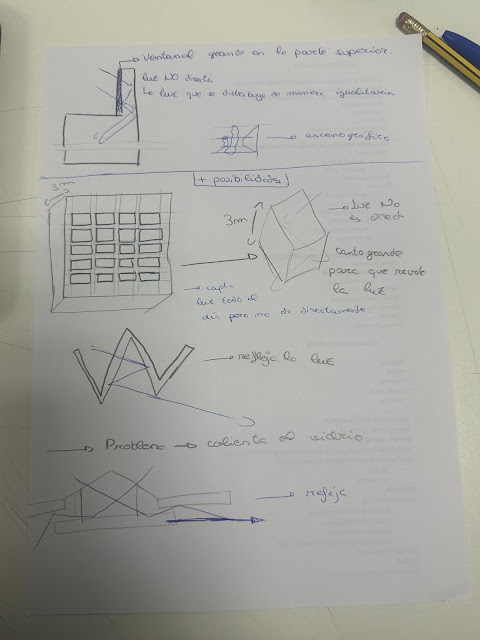 Ventanal grande en la parte superior.
luz NO directa
La luz que se distribuye de manera igualitaria
escenográfico.
+ posibilidades
3m
3m
Luz No
es direct
canto grande
para que rebote
la luz
capta
luz todo el
día pero no da directamente
refleja la luz
Problema → calienta el vidrio.
refleja